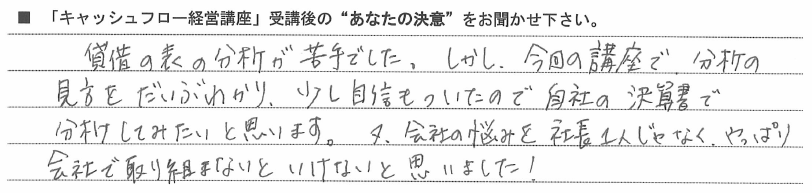 ■ 「キャッシュフロー経営講座」受講後の“あなたの決意”をお聞かせ下さい。
貸借の表の分析が苦手でした。しかし、今回の講座で 分析の
見方をだいぶわかり、少し自信もついたので自社の決算書で
分析してみたいと思います。又、会社の悩みを社長1人じゃなく、やっぱり
会社で取り組まないといけないと思いました!